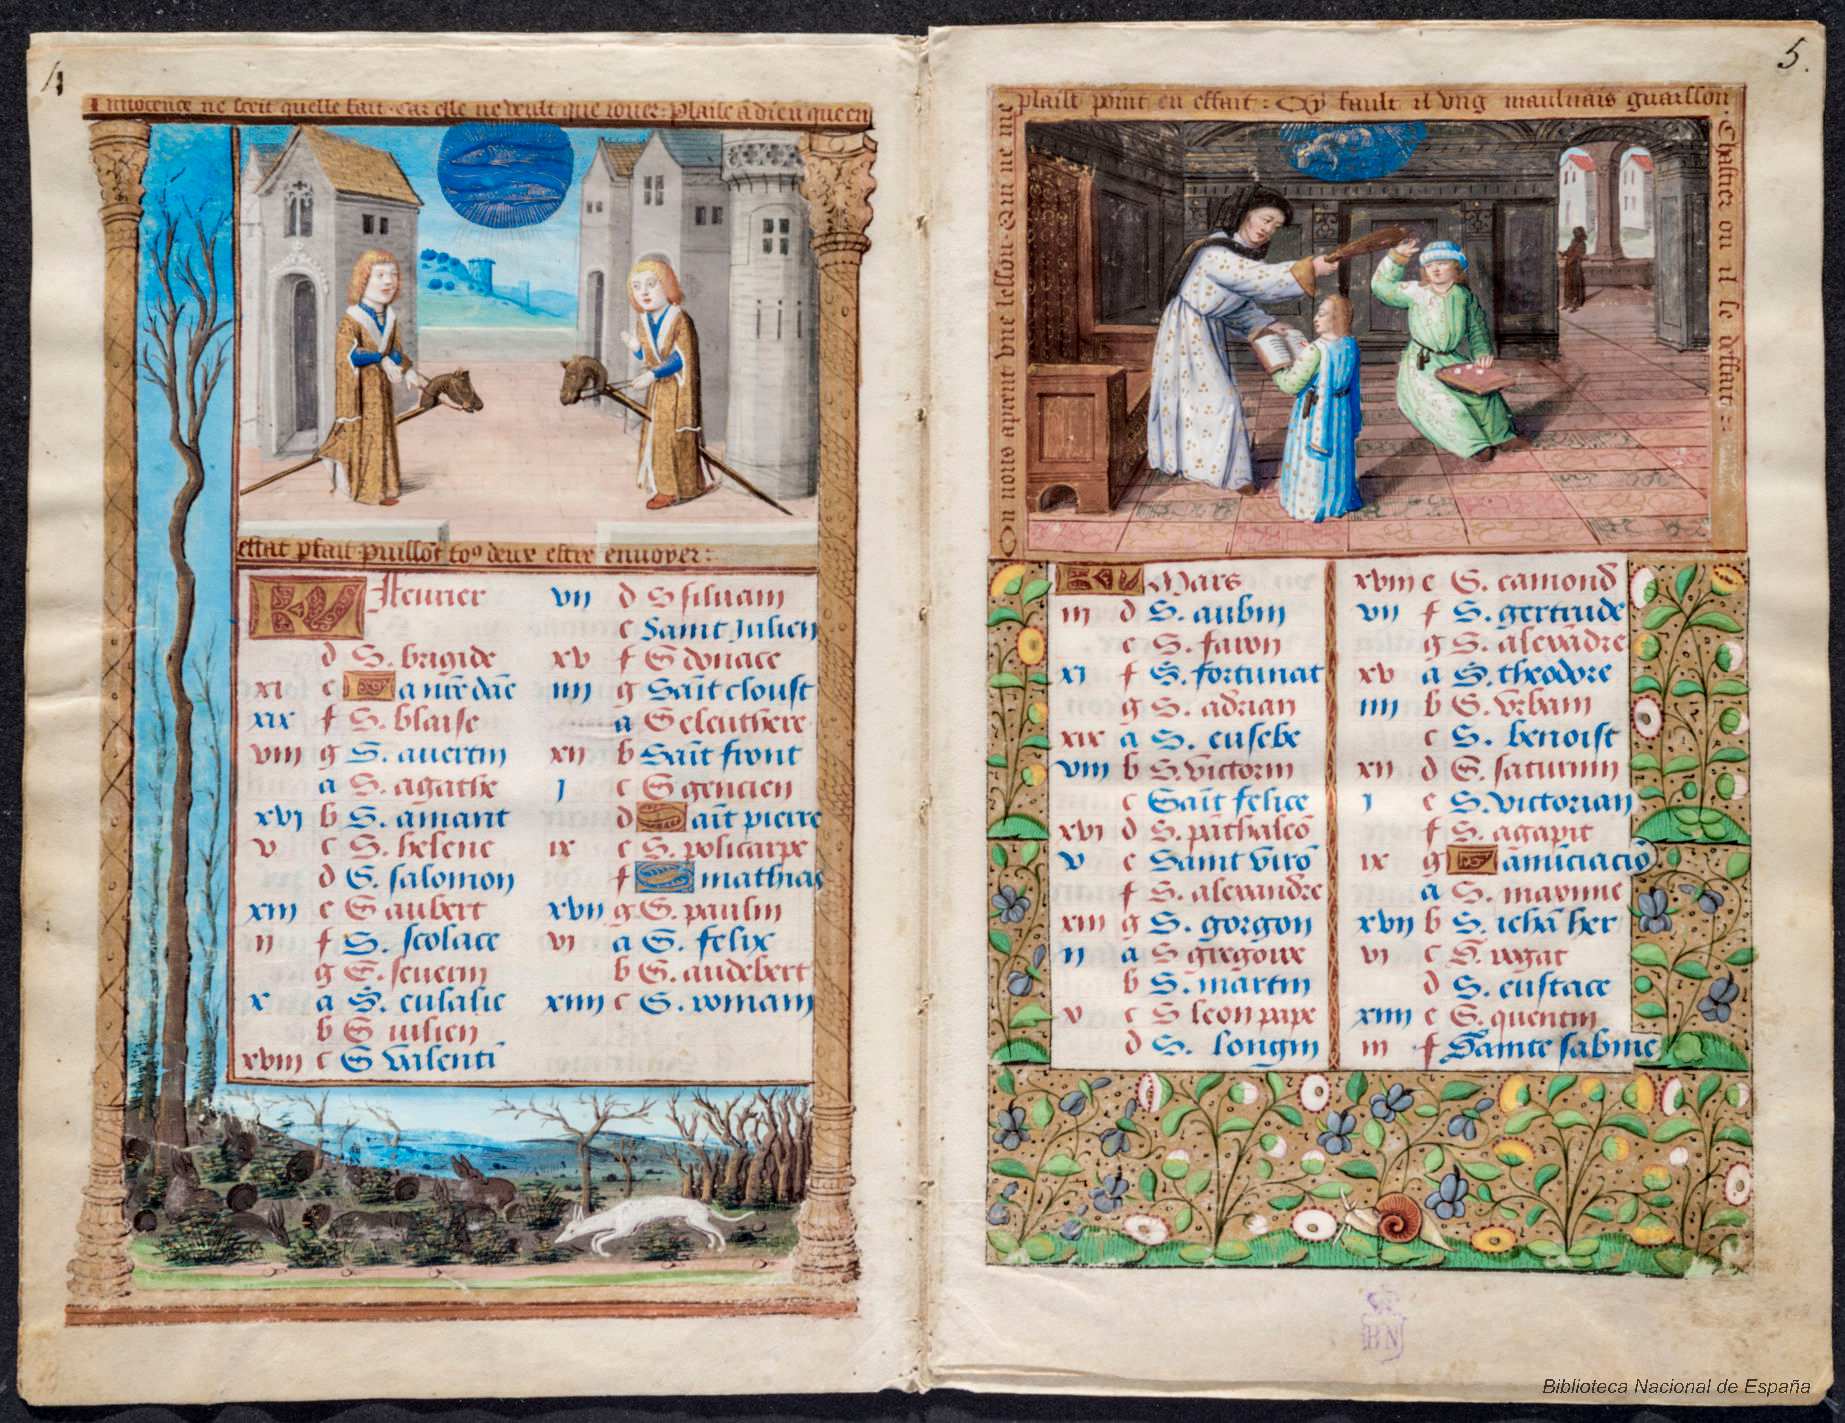 4
Innocence ne sceit quelle fait · car elle ne veult que iouer : Plaise a dieu que en
estat pfait puissõt toꝰ deux estre enuoyer :
KL Feurier
d S. brigide
xi e La nr̃e dãe
xix f S. blaise
viii g S. auertin
a S. agathe
xvi b S. amant
v c S. helene
d S. salomon
xiii e S aubert
ii f S. scolace
g S. seuerin
x a S. eulalie
b S iulien
xviii c S Valentĩ
vii d S siluain
e Saint Julien
xv f S donace
iiii g Saĩt cloust
a S eleuthere
xii b Saĩt front
j c S gencien
d Saĩt pierre
ix e S. policarpe
f S mathias
xvii g S. paulin
vi a S. felix
b S. audebert
xiiii c S. romain
5.
On nous aprent vne lesson · Qui ne me
plaist point en effait : Ou fault il vng mauluais guarsson ·
Chastier ou il se deffait :
KL Mars
iii d S. aubin
e S. fawn
xi f S. fortunat
g S. adrian
xix a S. eusebe
viii b S. victorin
c Saĩt felice
xvi d S. pãthaleõ
v e Saint
f S. alexandre
xiii g S. gorgon
ii a S gregoire
b S. martin
x c S leon pape
d S. longin
xviii e S. eamond
vii f S. gertrude
g S. alexãdre
xv a S. theodore
iiii b S. vrbain
c S. benoist
xii d S. saturnin
j e S. victorian
f S. agapit
ix g Lãnũciaciõ
a S. maxime
xvii b S. iehã her
vi c S. rogat
d S. eustace
xiiii e S. quentin
iii f Sainte sabine
BN
Biblioteca Nacional de España